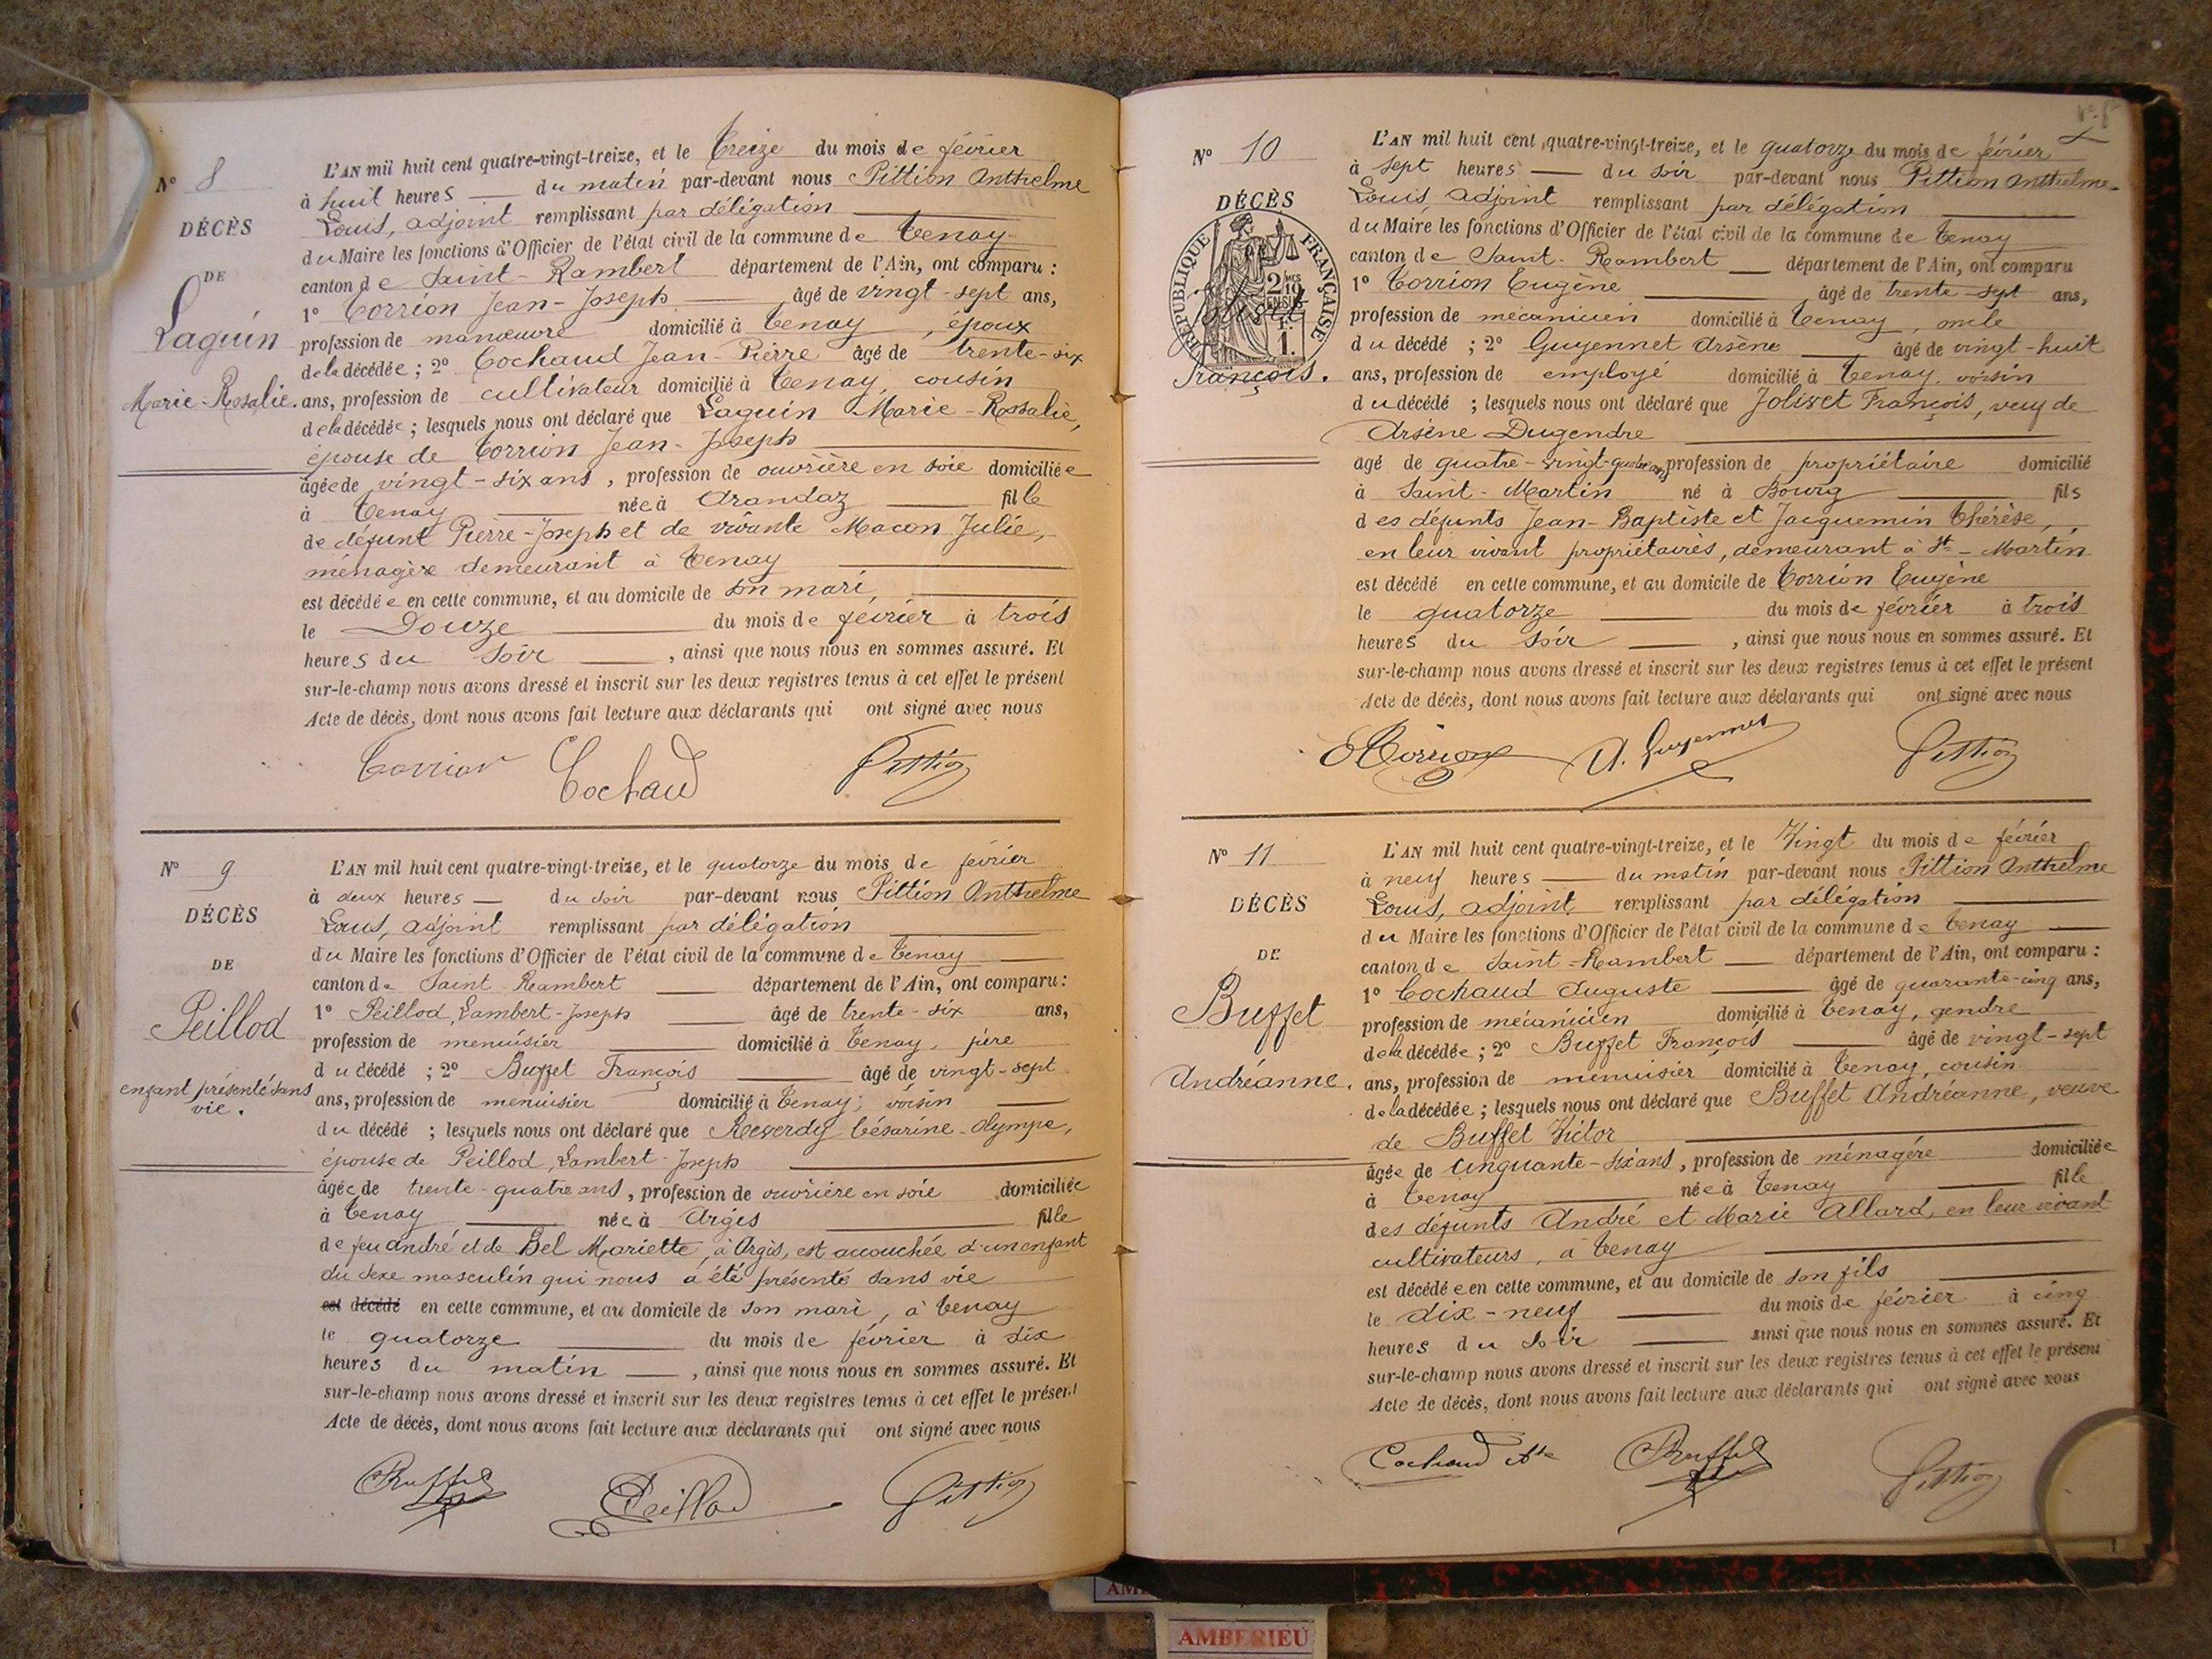 N° 8
DÉCÈS
DE
Laguin
Marie-Rosalie.
L'AN mil huit cent quatre-vingt-treize, et le treize du mois de février
à huit heures du matin par-devant nous Pittion Anthelme
Louis, adjoint remplissant par délégation
du Maire les fonctions d'Officier de l'état civil de la commune de Tenay
canton de Saint-Rambert département de l'Ain, ont comparu :
1° Torrion Jean-Joseph âgé de vingt-sept ans,
profession de manœuvre domicilié à Tenay, époux
de la décédée ; 2° Cochaud Jean-Pierre âgé de trente-six
ans, profession de cultivateur domicilié à Tenay, cousin
de la décédée ; lesquels nous ont déclaré que Laguin Marie-Rosalie,
épouse de Torrion Jean-Joseph
âgée de vingt-six ans, profession de ouvrière en soie domiciliée
à Tenay née à Arandaz fille
de défunt Pierre-Joseph et de vivante Macon Julie,
ménagère demeurant à Tenay
est décédée en cette commune, et au domicile de son mari,
le Douze du mois de février à trois
heures du soir, ainsi que nous nous en sommes assuré. Et
sur-le-champ nous avons dressé et inscrit sur les deux registres tenus à cet effet le présent
Acte de décès, dont nous avons fait lecture aux déclarants qui ont signé avec nous
Torrion Cochaud Pittion
N° 9
DÉCÈS
DE
Peillod
enfant présenté sans
vie.
L'AN mil huit cent quatre-vingt-treize, et le quatorze du mois de février
à deux heures du soir par-devant nous Pittion Anthelme
Louis, adjoint remplissant par délégation
du Maire les fonctions d'Officier de l'état civil de la commune de Tenay
canton de Saint Rambert département de l'Ain, ont comparu :
1° Peillod, Lambert-Joseph âgé de trente-six ans,
profession de menuisier domicilié à Tenay, père
du décédé ; 2° Buffet François âgé de vingt-sept
ans, profession de menuisier domicilié à Tenay, voisin
du décédé ; lesquels nous ont déclaré que Reverdy Césarine-Olympe,
épouse de Peillod, Lambert-Joseph
âgée de trente-quatre ans, profession de ouvrière en soie domiciliée
à Tenay née à Argis fille
de feu André et de Bel Mariette, à Argis, est accouchée d'un enfant
du sexe masculin qui nous a été présenté sans vie
est décédé en cette commune, et au domicile de son mari, à Tenay
le quatorze du mois de février à six
heures du matin, ainsi que nous nous en sommes assuré. Et
sur-le-champ nous avons dressé et inscrit sur les deux registres tenus à cet effet le présent
Acte de décès, dont nous avons fait lecture aux déclarants qui ont signé avec nous
Buffet Peillod Pittion
N° 10
DÉCÈS
RÉPUBLIQUE FRANÇAISE
François.
L'AN mil huit cent quatre-vingt-treize, et le quatorze du mois de février
à sept heures du soir par-devant nous Pittion Anthelme
Louis, adjoint remplissant par délégation
du Maire les fonctions d'Officier de l'état civil de la commune de Tenay
canton de Saint-Rambert département de l'Ain, ont comparu
1° Torrion Eugène âgé de trente-sept ans,
profession de mécanicien domicilié à Tenay, oncle
du décédé ; 2° Guyennet Arsène âgé de vingt-huit
ans, profession de employé domicilié à Tenay, voisin
du décédé ; lesquels nous ont déclaré que Jolivet François, veuf de
Arsène Dugendre
âgé de quatre-vingt-quatre ans profession de propriétaire domicilié
à Saint-Martin né à Bourg fils
des défunts Jean-Baptiste et Jacquemin Thérèse,
en leur vivant propriétaires, demeurant à St-Martin
est décédé en cette commune, et au domicile de Torrion Eugène
le quatorze du mois de février à trois
heures du soir, ainsi que nous nous en sommes assuré. Et
sur-le-champ nous avons dressé et inscrit sur les deux registres tenus à cet effet le présent
Acte de décès, dont nous avons fait lecture aux déclarants qui ont signé avec nous
E Torrion A. Guyennet Pittion
N° 11
DÉCÈS
DE
Buffet
Andréanne.
L'AN mil huit cent quatre-vingt-treize, et le Vingt du mois de février
à neuf heures du matin par-devant nous Pittion Anthelme
Louis, adjoint remplissant par délégation
du Maire les fonctions d'Officier de l'état civil de la commune de Tenay
canton de Saint-Rambert département de l'Ain, ont comparu :
1° Cochaud Auguste âgé de quarante-cinq ans,
profession de mécanicien domicilié à Tenay, gendre
de la décédée ; 2° Buffet François âgé de vingt-sept
ans, profession de menuisier domicilié à Tenay, cousin
de la décédée ; lesquels nous ont déclaré que Buffet Andréanne, veuve
de Buffet Victor
âgée de cinquante-six ans, profession de ménagère domiciliée
à Tenay née à Tenay fille
des défunts André et Marie Allard, en leur vivant
cultivateurs, à Tenay
est décédée en cette commune, et au domicile de son fils
le dix-neuf du mois de février à cinq
heures du soir ainsi que nous nous en sommes assuré. Et
sur-le-champ nous avons dressé et inscrit sur les deux registres tenus à cet effet le présent
Acte de décès, dont nous avons fait lecture aux déclarants qui ont signé avec nous
Cochaud Ate Buffet Pittion
AMBERIEU